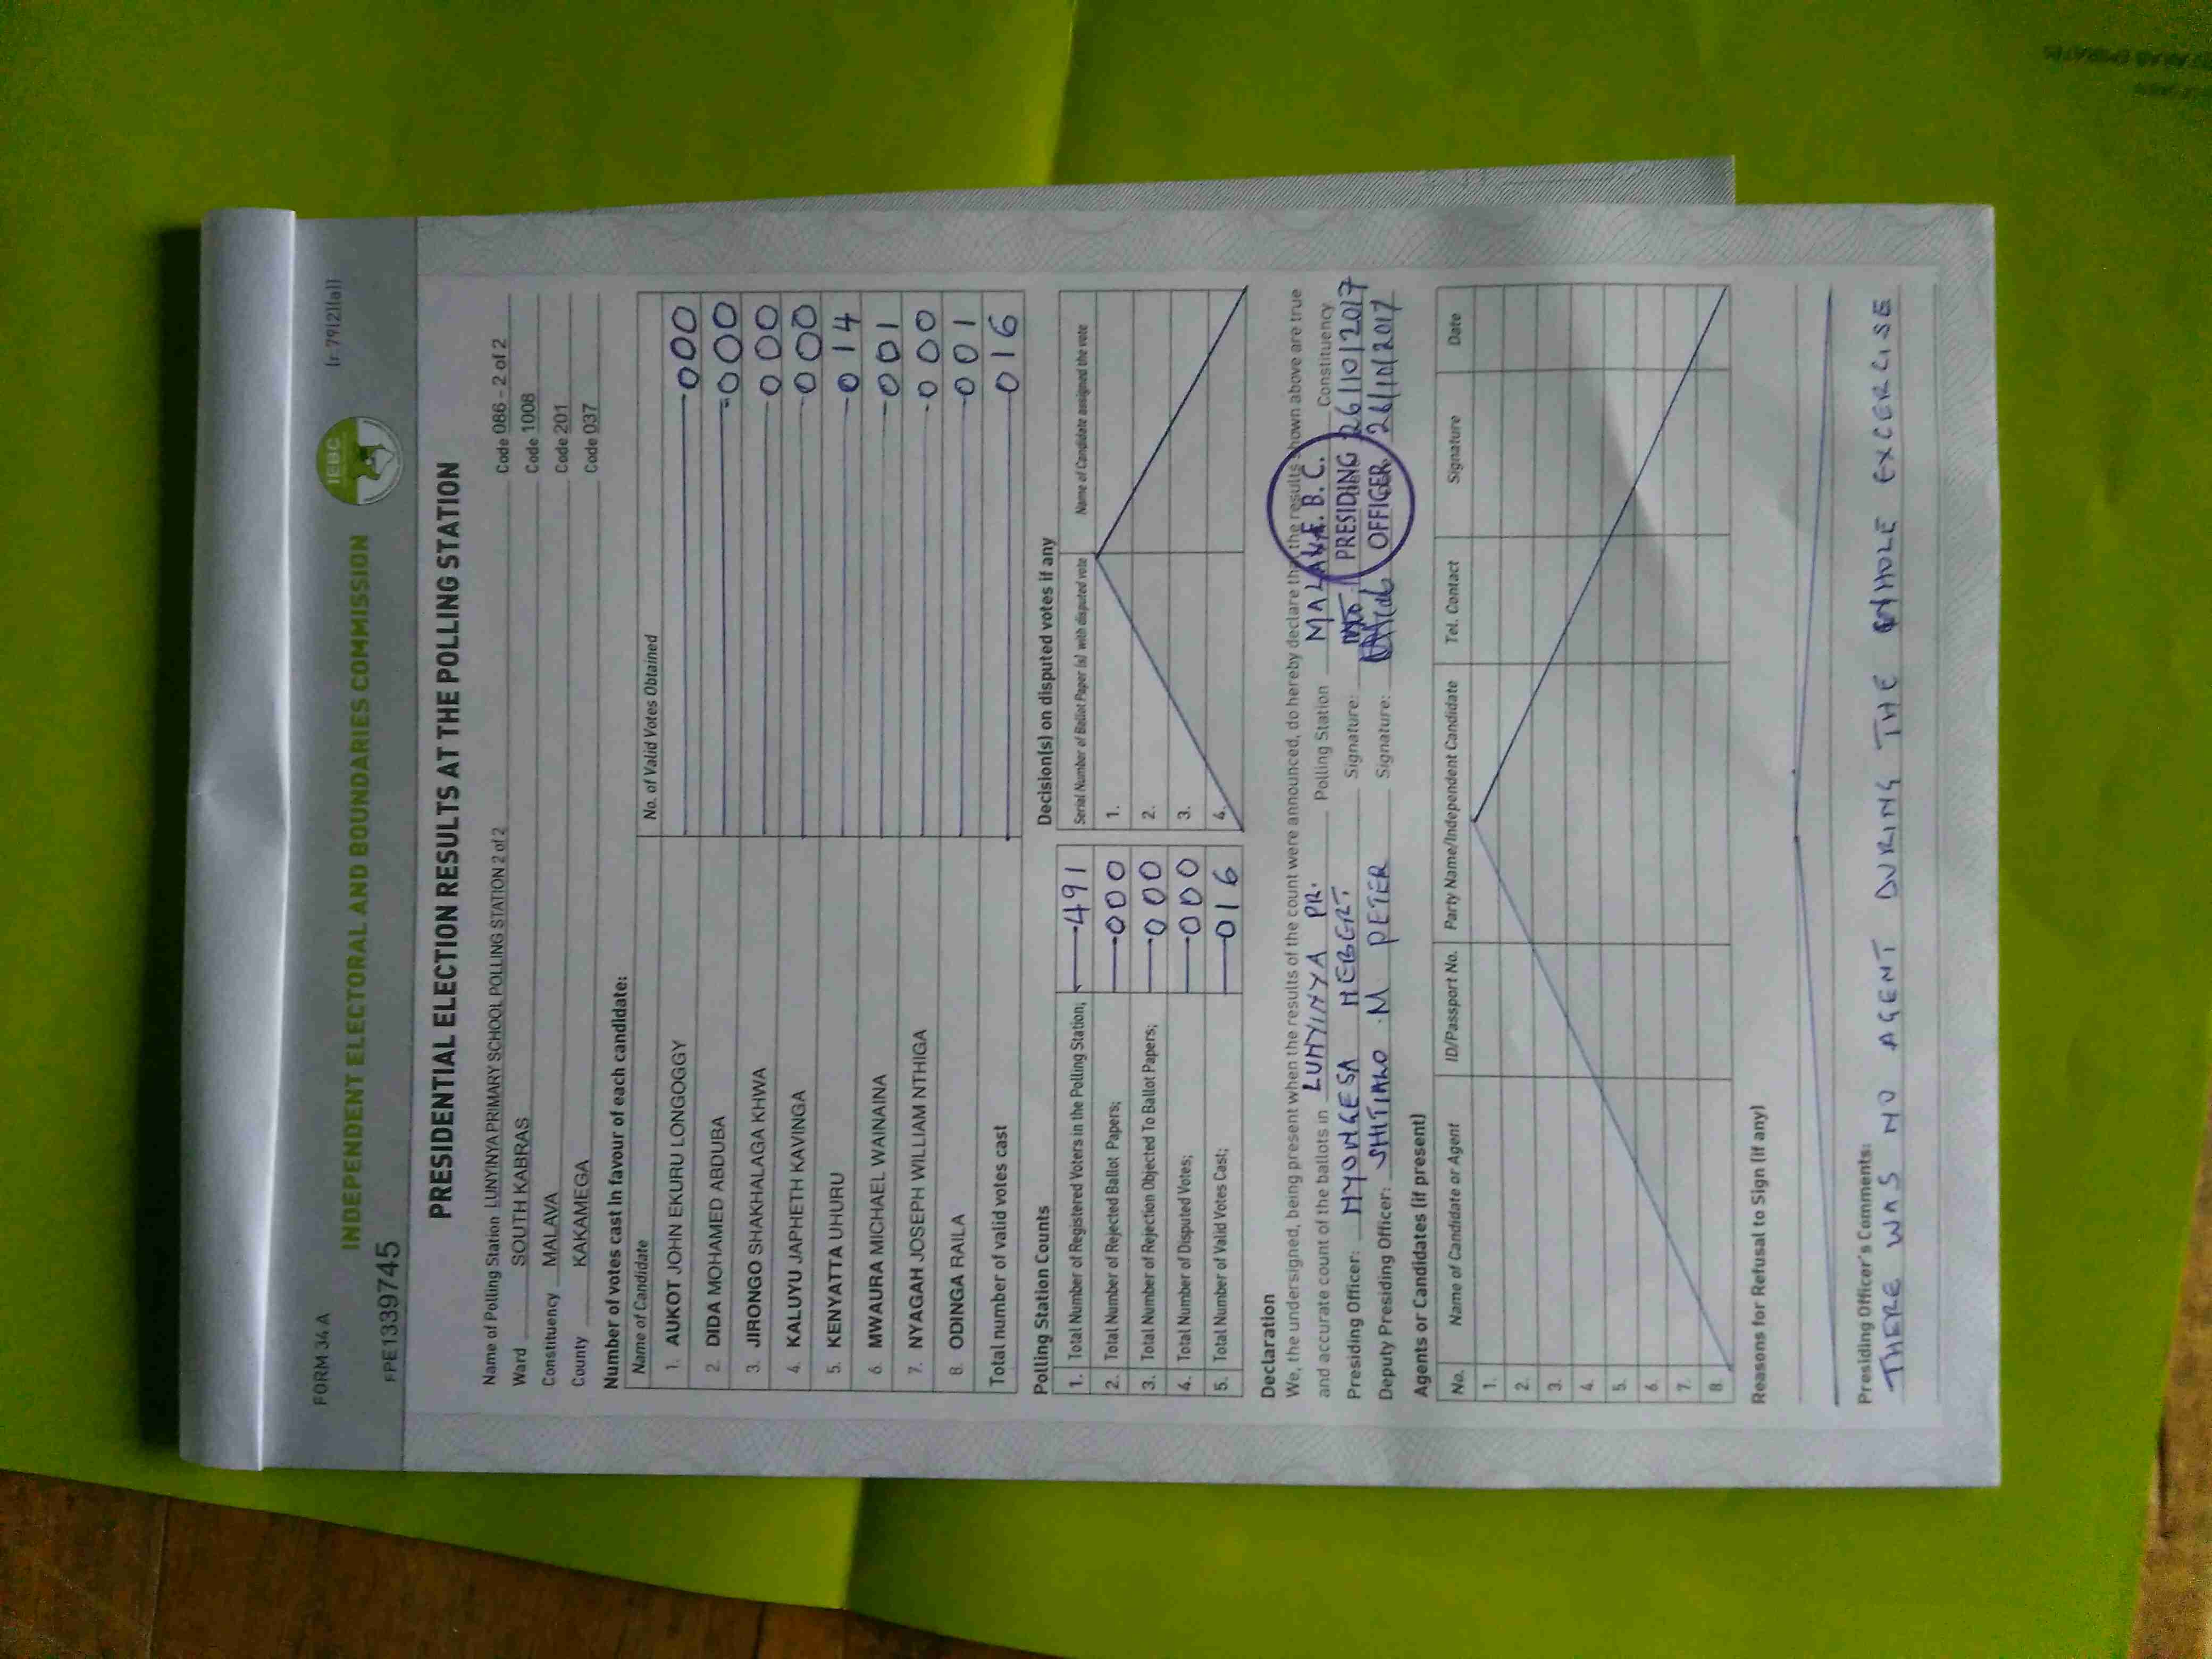 FORM 34A
(r 79(2)(a))
INDEPENDENT ELECTORAL AND BOUNDARIES COMMISSION
IEBC
FPE1339745
PRESIDENTIAL ELECTION RESULTS AT THE POLLING STATION
Name of Polling Station LUNYINYA PRIMARY SCHOOL POLLING STATION 2 of 2 Code 086 - 2 of 2
Ward SOUTH KABRAS Code 1008
Constituency MALAVA Code 201
County KAKAMEGA Code 037
Number of votes cast in favour of each candidate:
Name of Candidate No. of Valid Votes Obtained
1. AUKOT JOHN EKURU LONGOGGY 000
2. DIDA MOHAMED ABDUBA 000
3. JIRONGO SHAKHALAGA KHWA 000
4. KALUYU JAPHETH KAVINGA 000
5. KENYATTA UHURU 014
6. MWAURA MICHAEL WAINAINA 001
7. NYAGAH JOSEPH WILLIAM NTHIGA 000
8. ODINGA RAILA 001
Total number of valid votes cast 016
Polling Station Counts
1. Total Number of Registered Voters in the Polling Station; 491
2. Total Number of Rejected Ballot Papers; 000
3. Total Number of Rejection Objected To Ballot Papers; 000
4. Total Number of Disputed Votes; 000
5. Total Number of Valid Votes Cast; 016
Decision(s) on disputed votes if any
Serial Number of Ballot Paper (s) with disputed vote Name of Candidate assigned the vote
1.
2.
3.
4.
Declaration
We, the undersigned, being present when the results of the count were announced, do hereby declare that the results shown above are true
and accurate count of the ballots in LUNYINYA PR. Polling Station MALAVA Constituency
Presiding Officer: NYONGESA HEBERT Signature: 26/10/2017
Deputy Presiding Officer: SHITIAKO .M PETER Signature: 26/10/2017
B. C.
PRESIDING
OFFICER
Agents or Candidates (if present)
No. Name of Candidate or Agent ID/Passport No. Party Name/Independent Candidate Tel. Contact Signature Date
1.
2.
3.
4.
5.
6.
7.
8.
Reasons for Refusal to Sign (if any)
Presiding Officer's Comments:
THERE WAS NO AGENT DURING THE WHOLE EXCERCISE